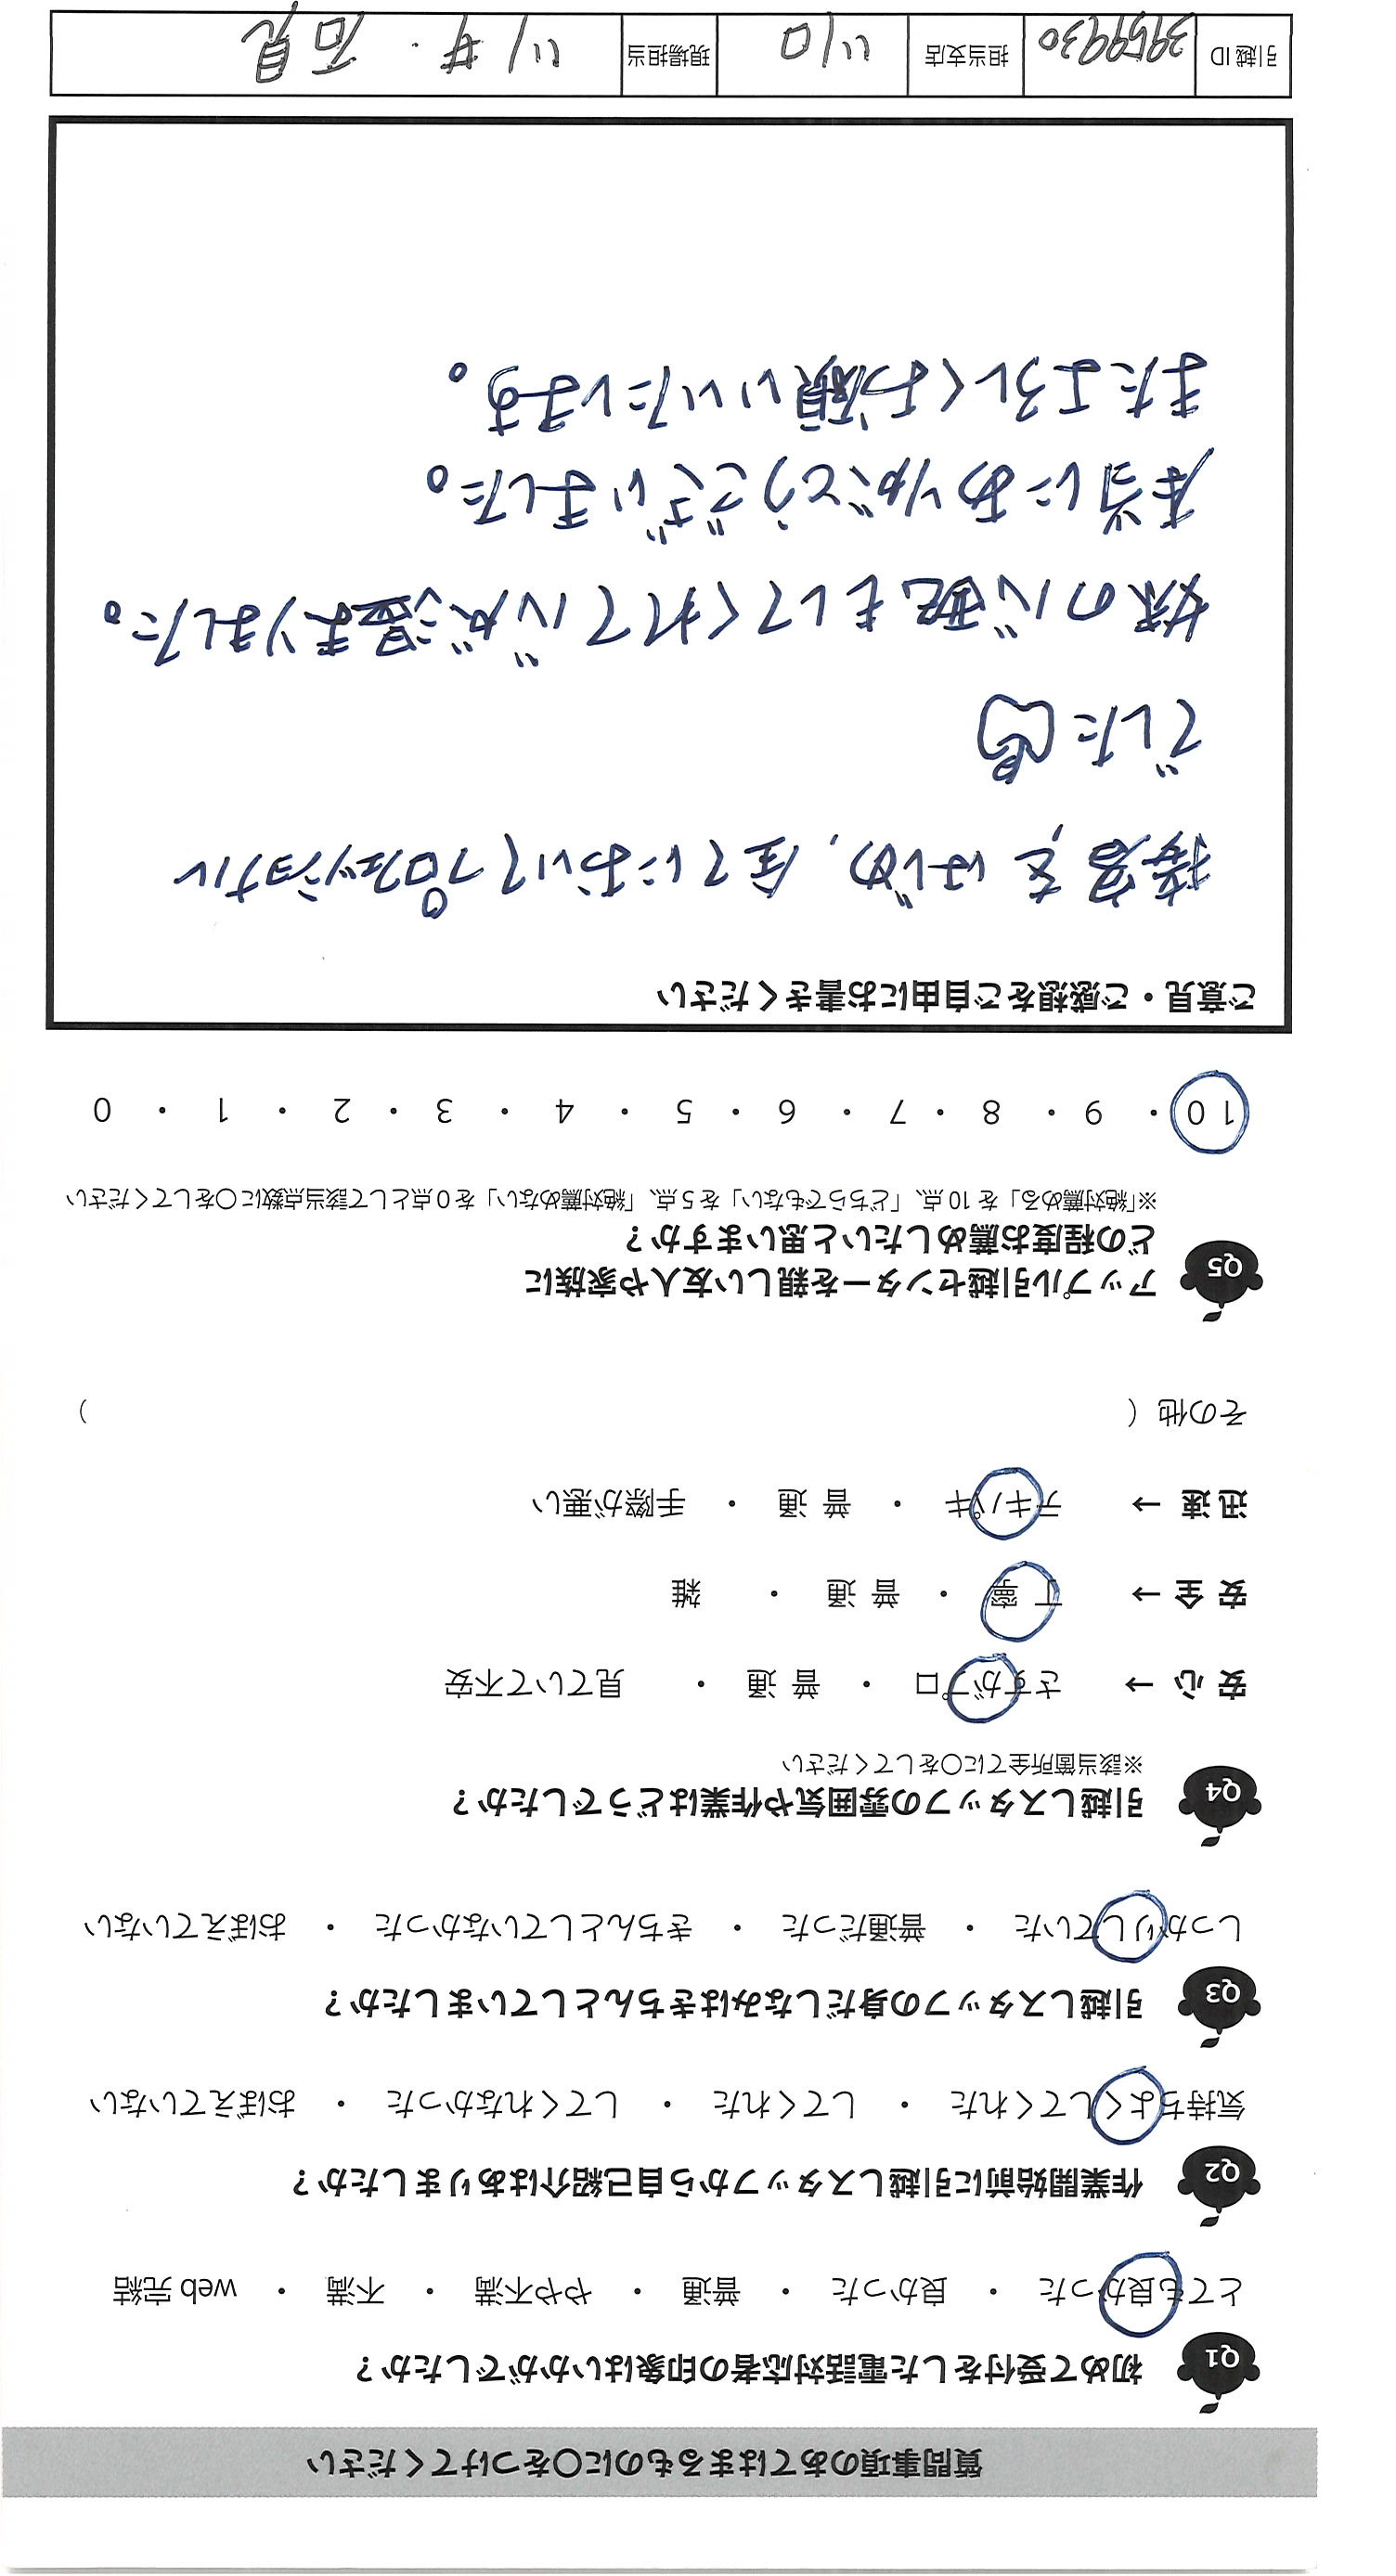 質問事項のあてはまるものに○をつけてください
Q1 初めて受付をした電話対応者の印象はいかがでしたか？
とても良かった ・ 良かった ・ 普通 ・ やや不満 ・ 不満 ・ web 完結
Q2 作業開始前に引越しスタッフから自己紹介はありましたか？
気持ちよくしてくれた ・ してくれた ・ してくれなかった ・ おぼえていない
Q3 引越しスタッフの身だしなみはきちんとしていましたか？
しっかりしていた ・ 普通だった ・ きちんとしていなかった ・ おぼえていない
Q4 引越しスタッフの雰囲気や作業はどうでしたか？
※該当箇所全てに○をしてください
安 心 → さすがプロ ・ 普 通 ・ 見ていて不安
安 全 → 丁 寧 ・ 普 通 ・ 雑
迅 速 → テキパキ ・ 普 通 ・ 手際が悪い
その他（ ）
Q5 アップル引越センターを親しい友人や家族に
どの程度お薦めしたいと思いますか？
※「絶対薦める」を 10 点、「どちらでもない」を 5 点、「絶対薦めない」を 0 点として該当点数に○をしてください
10 ・ 9 ・ 8 ・ 7 ・ 6 ・ 5 ・ 4 ・ 3 ・ 2 ・ 1 ・ 0
ご意見・ご感想をご自由にお書きください
接客をはじめ、全てにおいてプロフェッショナル
でした
嫁の心配もしてくれて心が温まりました。
本当にありがとうございました。
またよろしくお願いいたします。
引越 ID 3959930 担当支店 川口 現場担当 川井・石見